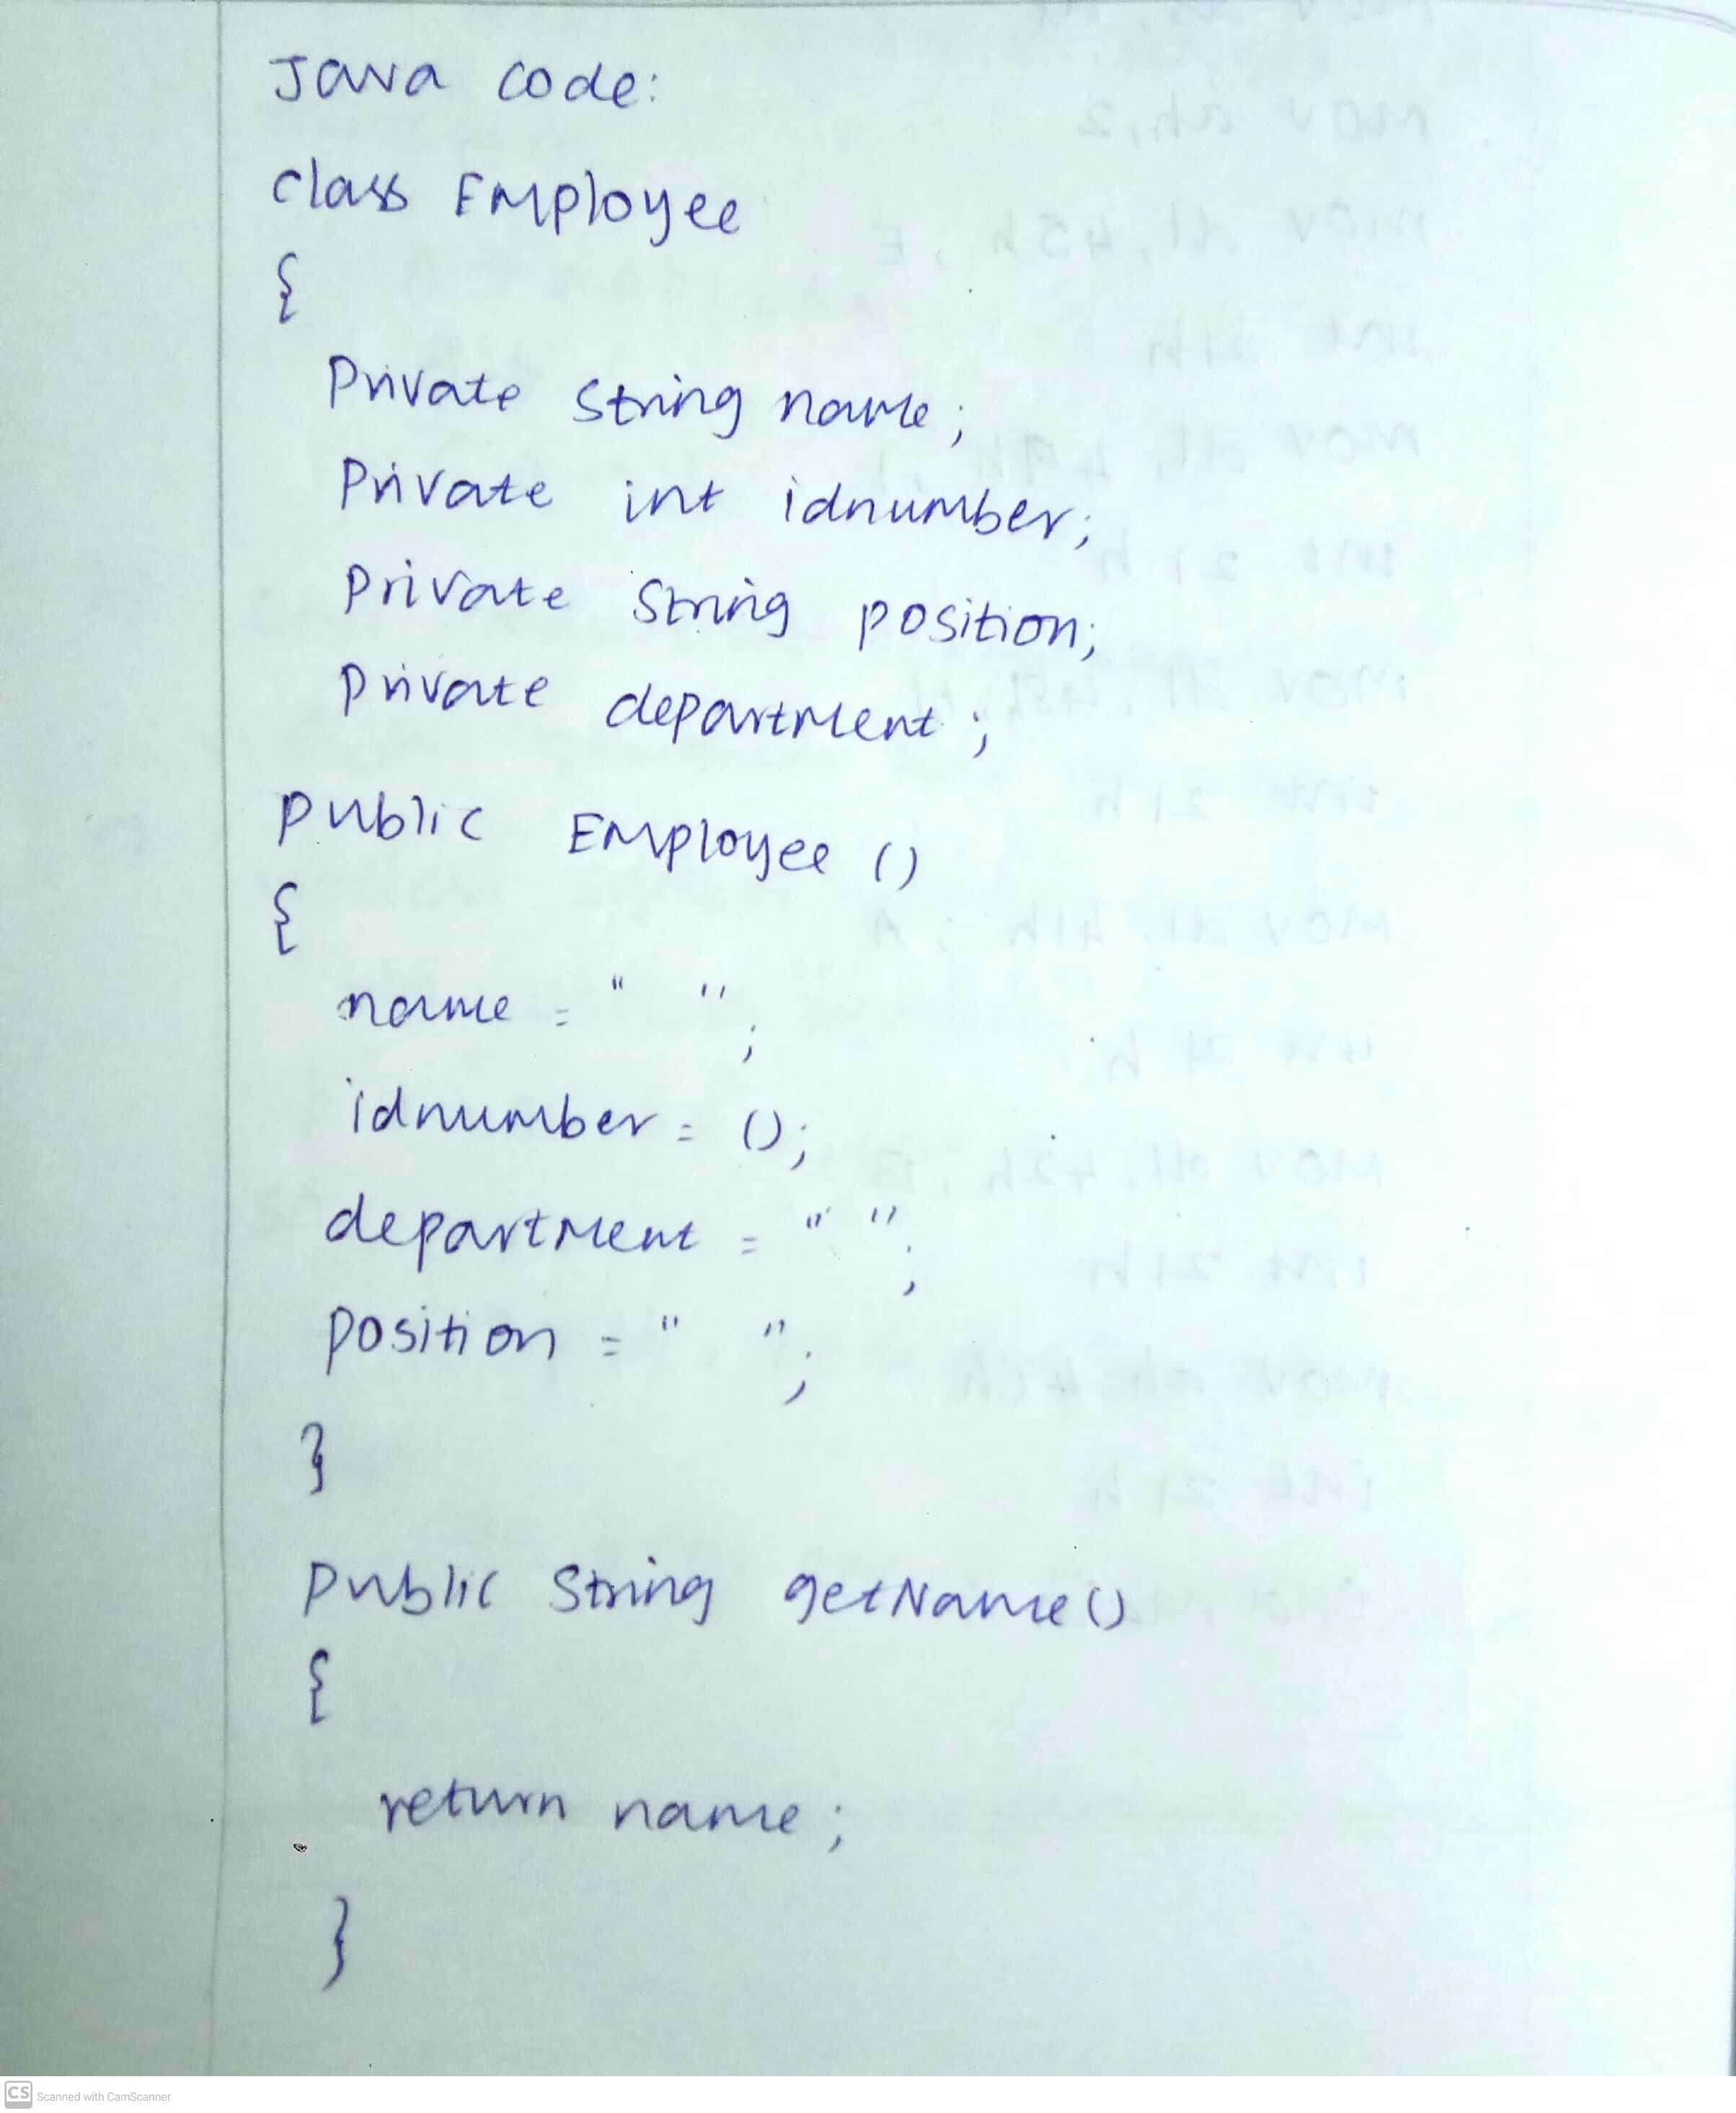 Java code:
class Employee
{
Private String name;
Private int idnumber;
Private String position;
Private department;
Public Employee ()
{
name = " ";
idnumber = ();
department = " ";
position = " ";
}
Public String getName()
{
return name;
}
CS Scanned with CamScanner